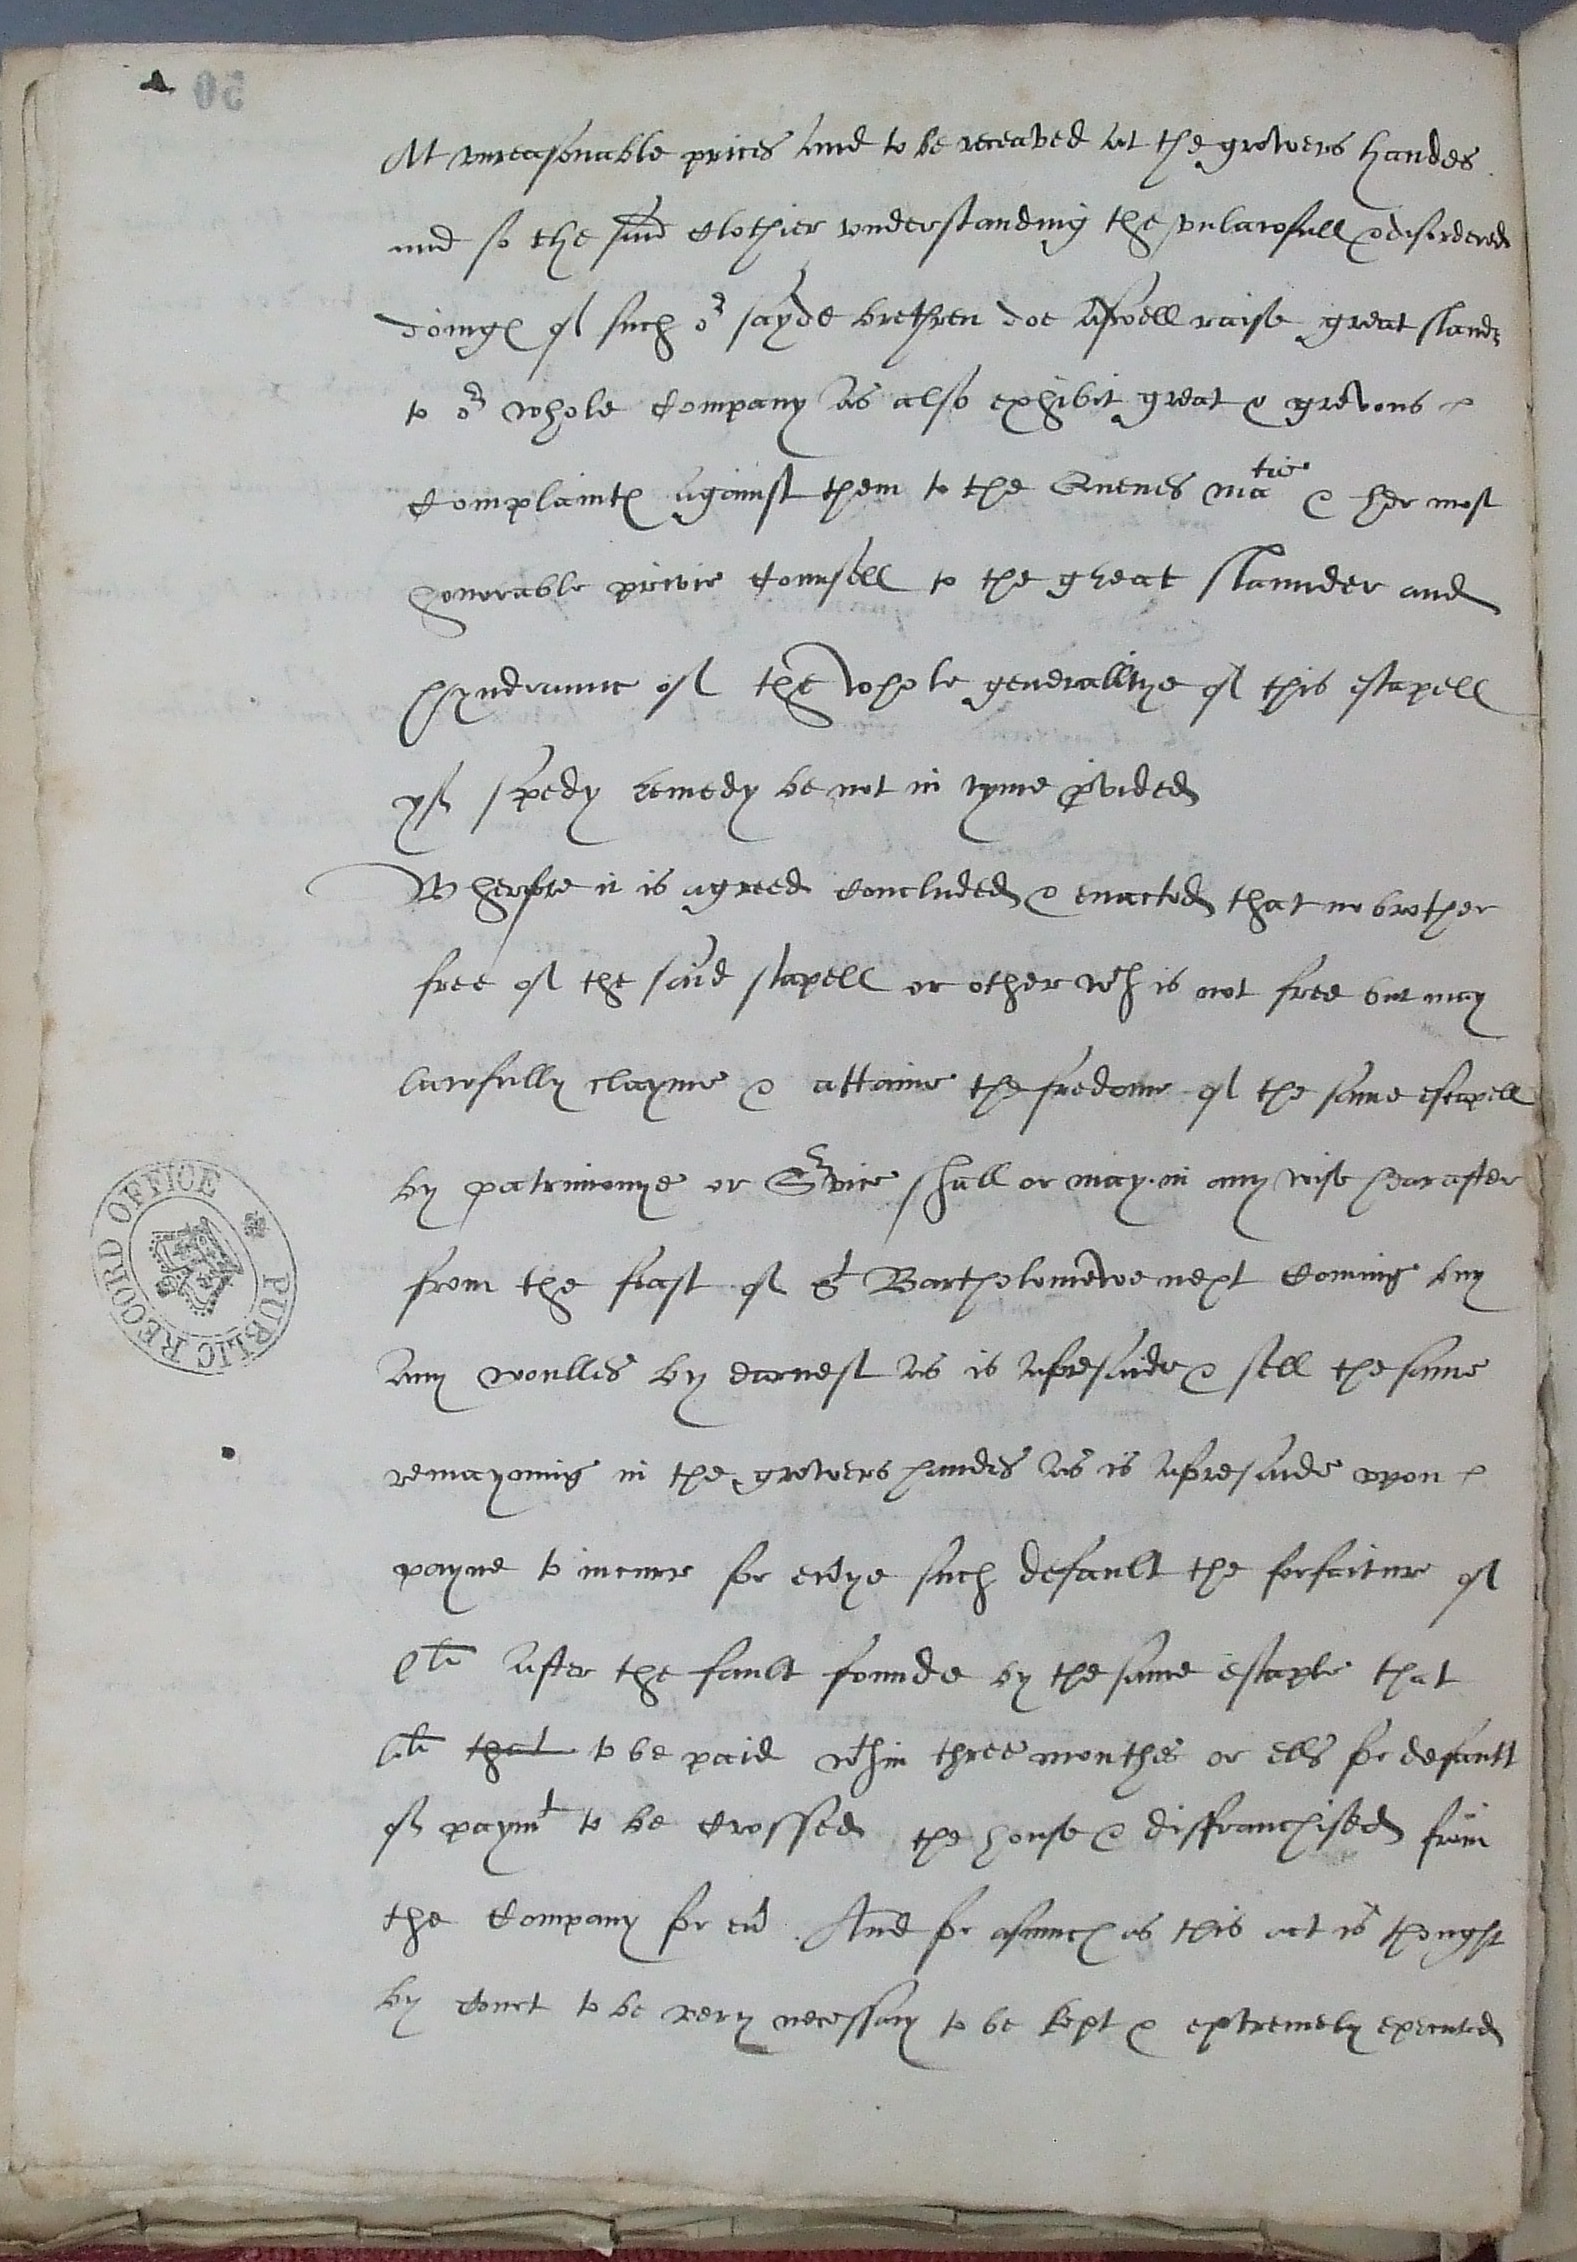 50
At vnreasonable prices and to be receaved at the growers handes
and so the said Clothier vnderstanding the vnlawfull & disordered
doinges of such or sayde brethren doe aswell raise great sland
to or whole Company as also exhibit great & grevous
Complaintes against them to the Quenes matie & her most
honorable privie Counsell to the great slaunder and
hyndraunce of the whole generalitye of this estapell
yf spedy remedy be not in tyme provided
Wherfore it is agreed Concluded & enacted that no brother
free of the said stapell or other wch is not free but may
lawfully clayme & attaine the fredome of the same estapell
by patrimonye or Service shall or may in any wise hearafter
from the feast of St Bartholomewe next Coming buy
any woulles by earnest as is aforesaide & sell the same
remayning in the growers handes as is aforesaide vpon
payne to incurre for everye such default the forfaiture of
Cli After the fault founde by the same estaple that
Cli that to be paid wthin three monthes or ells for default
of paymt to be Crossed the house & disfranchised from
the Company for ever And for asmuch as this act is thought
by Court to be very necessary to be kept & extremely executed
PUBLIC RECORD OFFICE